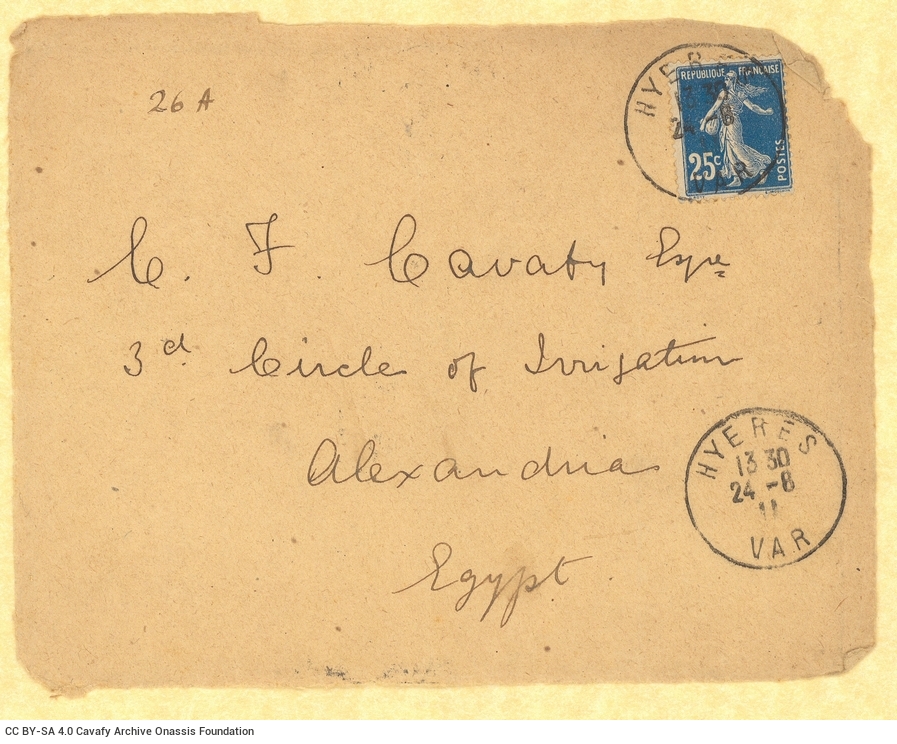 26 A
HYERES
13 30
24 -8
VAR
REPUBLIQUE FRANÇAISE
25c
POSTES
C. F. Cavafy Esqre
3d Circle of Irrigation
Alexandria
Egypt.
HYERES
13 30
24 -8
11
VAR
CC BY-SA 4.0 Cavafy Archive Onassis Foundation